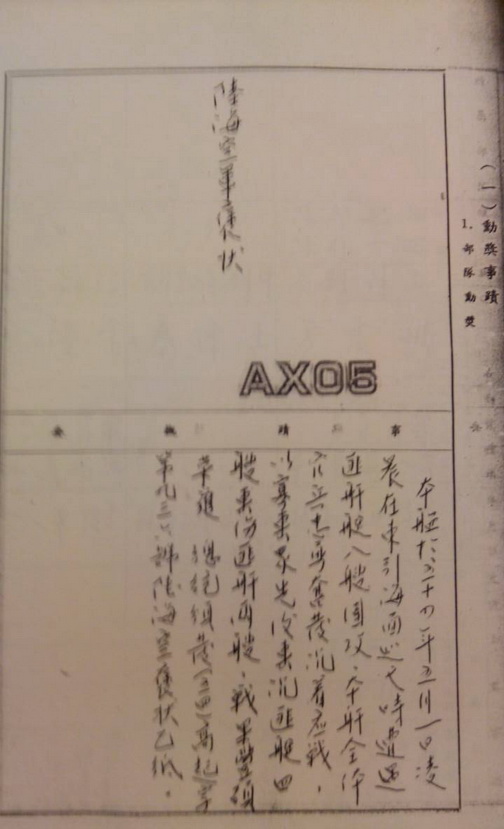 （一）勳獎事蹟
1. 部隊勳獎
陸海空軍褒狀
AX05
事蹟概要
本艦於五十四年五月一日凌
晨在東引海面巡弋時遭遇
匪艦艇八艘圍攻，本艦全体
官兵忠勇奮發沉著應戰，
以寡擊眾先後擊沉匪艇四
艘重傷匪艦兩艘，戰果豐碩
幸獲 總統頒發 字
第九三六號陸海空褒狀乙紙。